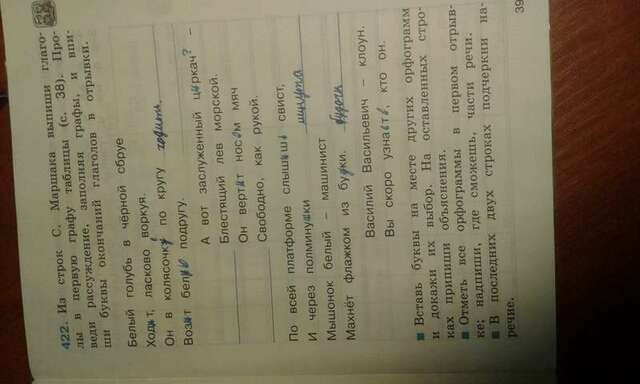 422. Из строк С. Маршака выпиши глаго-
лы в первую графу таблицы (с. 38). Про-
веди рассуждение, заполняя графы, и впи-
ши буквы окончаний глаголов в отрывки.
Белый голубь в чёрной сбруе
Ходит, ласково воркуя.
Он в колясочке по кругу ходит
Возит белую подругу.
А вот заслуженный циркач? –
Блестящий лев морской.
Он вертит носом мяч
Свободно, как рукой.
По всей платформе слышишь свист,
И через полминутки минута
Мышонок белый – машинист
Махнёт флажком из будки. будочка
Василий Васильевич – клоун.
Вы скоро узнаете, кто он.
■ Вставь буквы на месте других орфограмм
и докажи их выбор. На оставленных стро-
ках припиши объяснения.
■ Отметь все орфограммы в первом отрыв-
ке; надпиши, где сможешь, части речи.
■ В последних двух строках подчеркни на-
речие.
39